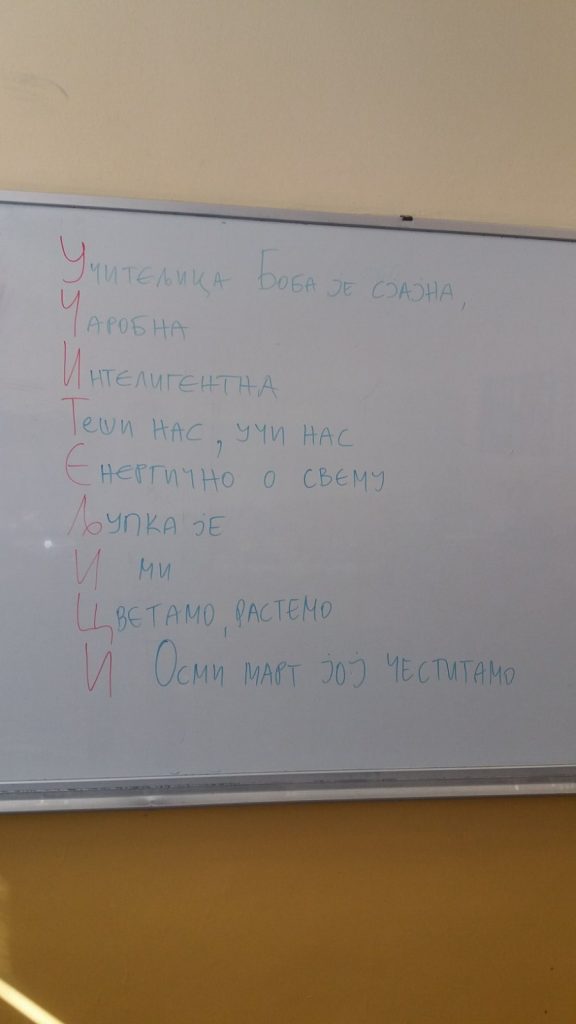 Учитељица Боба је сјајна,
Чаробна
Интелигентна
Теши нас, учи нас
Енергично о свему
Љупка је
И ми
Цветамо, растемо
И Осми март јој честитамо